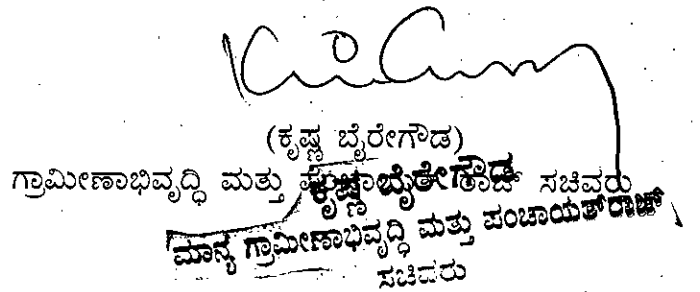 (ಕೃಷ್ಣ ಬೈರೇಗೌಡ)
ಗ್ರಾಮೀಣಾಭಿವೃದ್ಧಿ ಮತ್ತು ಸಚಿವರು
ಕೃಷ್ಣ ಬೈರೇಗೌಡ
ಮಾನ್ಯ ಗ್ರಾಮೀಣಾಭಿವೃದ್ಧಿ ಮತ್ತು ಪಂಚಾಯತ್‌ರಾಜ್
ಸಚಿವರು